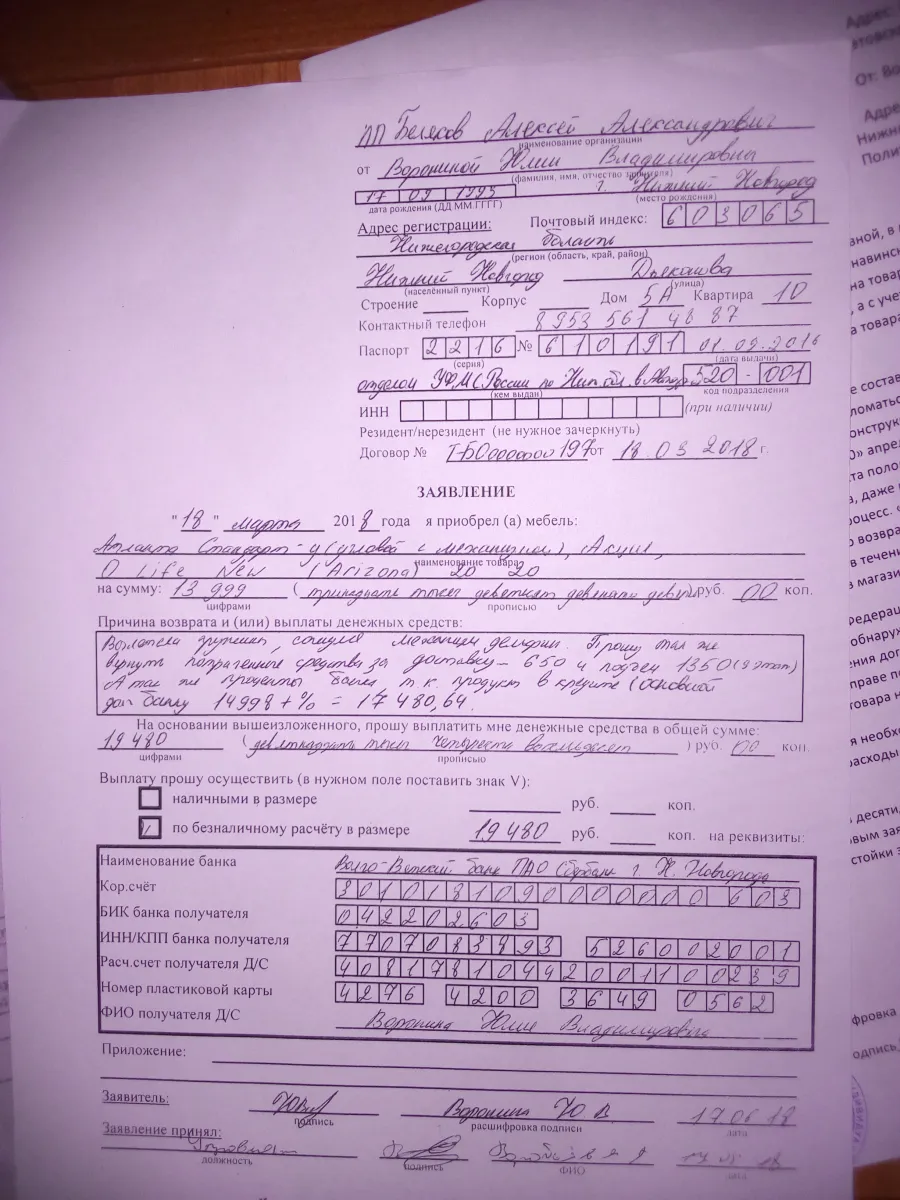 ИП Белясов Алексей Александрович
наименование организации
от Ворониной Юлии Владимировны
(фамилия, имя, отчество заявителя)
17 09 1995 г. Нижний Новгород
дата рождения (ДД ММ ГГГГ) (место рождения)
Адрес регистрации: Почтовый индекс: 603065
Нижегородская область
(регион (область, край, район)
Нижний Новгород Дьяконова
(населённый пункт) (улица)
Строение Корпус Дом 5А Квартира 10
Контактный телефон 8 953 561 48 87
Паспорт 2216 № 610191 01.09.2016
(серия) (дата выдачи)
отделом УФМС России по Ниж обл. в 520 - 001
(кем выдан) код подразделения
ИНН (при наличии)
Резидент/нерезидент (не нужное зачеркнуть)
Договор № Т-Б0000000197 от 18.03.2018 г.
ЗАЯВЛЕНИЕ
"18" марта 2018 года я приобрел (а) мебель:
Атланта Стандарт-у (угловой с механизмом), Акция,
О Life New (Arizona) 20 20
наименование товара
на сумму: 13 999 (тринадцать тысяч девятьсот девяносто девять) руб. 00 коп.
цифрами прописью
Причина возврата и (или) выплаты денежных средств:
Вылетели пружины, механизм дельфин. Прошу так же
вернуть потраченные средства за доставку - 650 и подъем 1350 (9 этаж)
А так же проценты банка т.к. продукт в кредите (основной
долг банку 14998 + % = 17480,64.
На основании вышеизложенного, прошу выплатить мне денежные средства в общей сумме:
19480 (девятнадцать тысяч четыреста восемьдесят) руб. 00 коп.
цифрами прописью
Выплату прошу осуществить (в нужном поле поставить знак V):
наличными в размере руб. коп.
V по безналичному расчёту в размере 19480 руб. коп. на реквизиты:
Наименование банка Волго-Вятский банк ПАО Сбербанк г. Н. Новгорода
Кор.счёт 30101810900000000603
БИК банка получателя 042202603
ИНН/КПП банка получателя 7707083893 526002001
Расч.счет получателя Д/С 40817810442001100239
Номер пластиковой карты 4276 4200 3649 0562
ФИО получателя Д/С Воронина Юлия Владимировна
Приложение:
Заявитель: Воронина Ю.В. 17.06.18
подпись расшифровка подписи дата
Заявление принял:
должность подпись ФИО дата